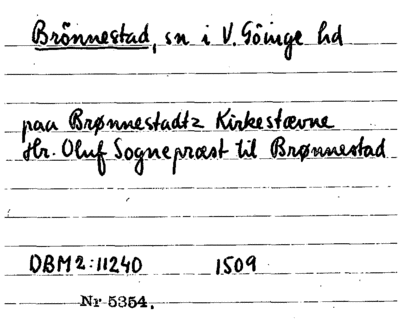 Brönnestad, sn i V. Göinge hd
paa Brønnestadtz Kirkestævne
Hr. Oluf Sognepræst til Brønnestad
DBM2:11240 1509
Nr 5354.